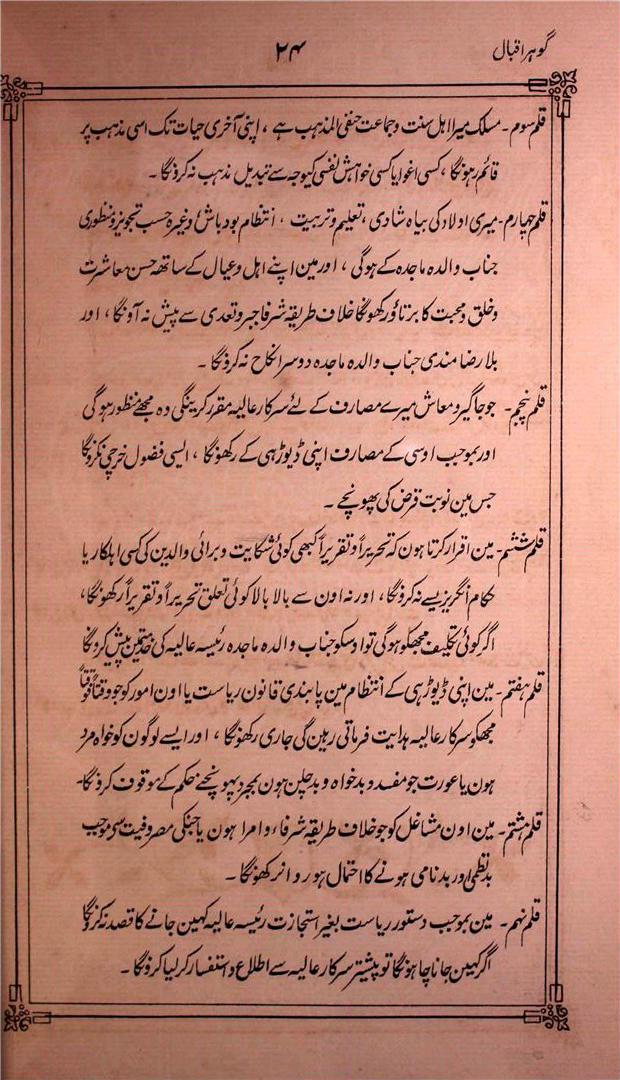 گوہر اقبال
۲۴
قلم سوم۔ مسلک میرا اہل سنت و جماعت حنفی المذہب ہے ، اپنی آخری حیات تک اسی مذہب پر
قائم رہونگا ، کسی اغوا یا کسی خواہش نفسی کیوجہ سے تبدیل مذہب نہ کرونگا۔
قلم چہارم۔ میری اولاد کی بیاہ شادی ، تعلیم و تربیت ، انتظام بود باش وغیرہ حسب تجویز و منظوری
جناب والدہ ماجدہ کے ہوگی ، اور مین اپنے اہل و عیال کے ساتھ حسن معاشرت
و خلق و محبت کا برتاؤ رکھونگا خلاف طریقہ شرفا جبر و تعدی سے پیش نہ آونگا ، اور
بلا رضامندی جناب والدہ ماجدہ دوسرا نکاح نہ کرونگا۔
قلم پنجم۔ جو جاگیر و معاش میرے مصارف کے لئے سرکار عالیہ مقرر کرینگی وہ مجھے منظور ہوگی
اور بموجب اوسی کے مصارف اپنی ڈیوڑہی کے رکھونگا ، ایسی فضول خرچی نکرونگا
جس مین نوبت قرض کی پھونچے ۔
قلم ششم۔ مین اقرار کرتا ہون کہ تحریراً و تقریراً کبھی کوئی شکایت و برائی والدین کی کسی اہلکار یا
حکام انگریز سے نہ کرونگا ، اور نہ اون سے بالا بالا کوئی تعلق تحریراً و تقریراً رکھونگا،
اگر کوئی تکلیف مجھکو ہوگی تو اوسکو جناب والدہ ماجدہ رئیسہ عالیہ کی خدمتمین پیش کرونگا
قلم ہفتم۔ مین اپنی ڈیوڑہی کے انتظام مین پابندی قانون ریاست یا اون امور کو جو وقتاً فوقتاً
مجھکو سرکار عالیہ ہدایت فرماتی رہین گی جاری رکھونگا ، اور ایسے لوگون کو خواہ مرد
ہون یا عورت جو مفسد و بدخواہ و بدچلن ہون بمجرد پہونچنے حکم کے موقوف کرونگا۔
قلم ہشتم۔ مین اون مشاغل کو جو خلاف طریقہ شرفاء و امرا ہون یا جنکی مصروفیت سے موجب
بدنظمی اور بدنامی ہونے کا احتمال ہو روا نرکھونگا۔
قلم نہم۔ مین بموجب دستور ریاست بغیر استجازت رئیسہ عالیہ کہین جانے کا قصد نہ کرونگا
اگر کہین جانا چاہونگا تو پیشتر سرکار عالیہ سے اطلاع و استفسار کر لیا کرونگا۔